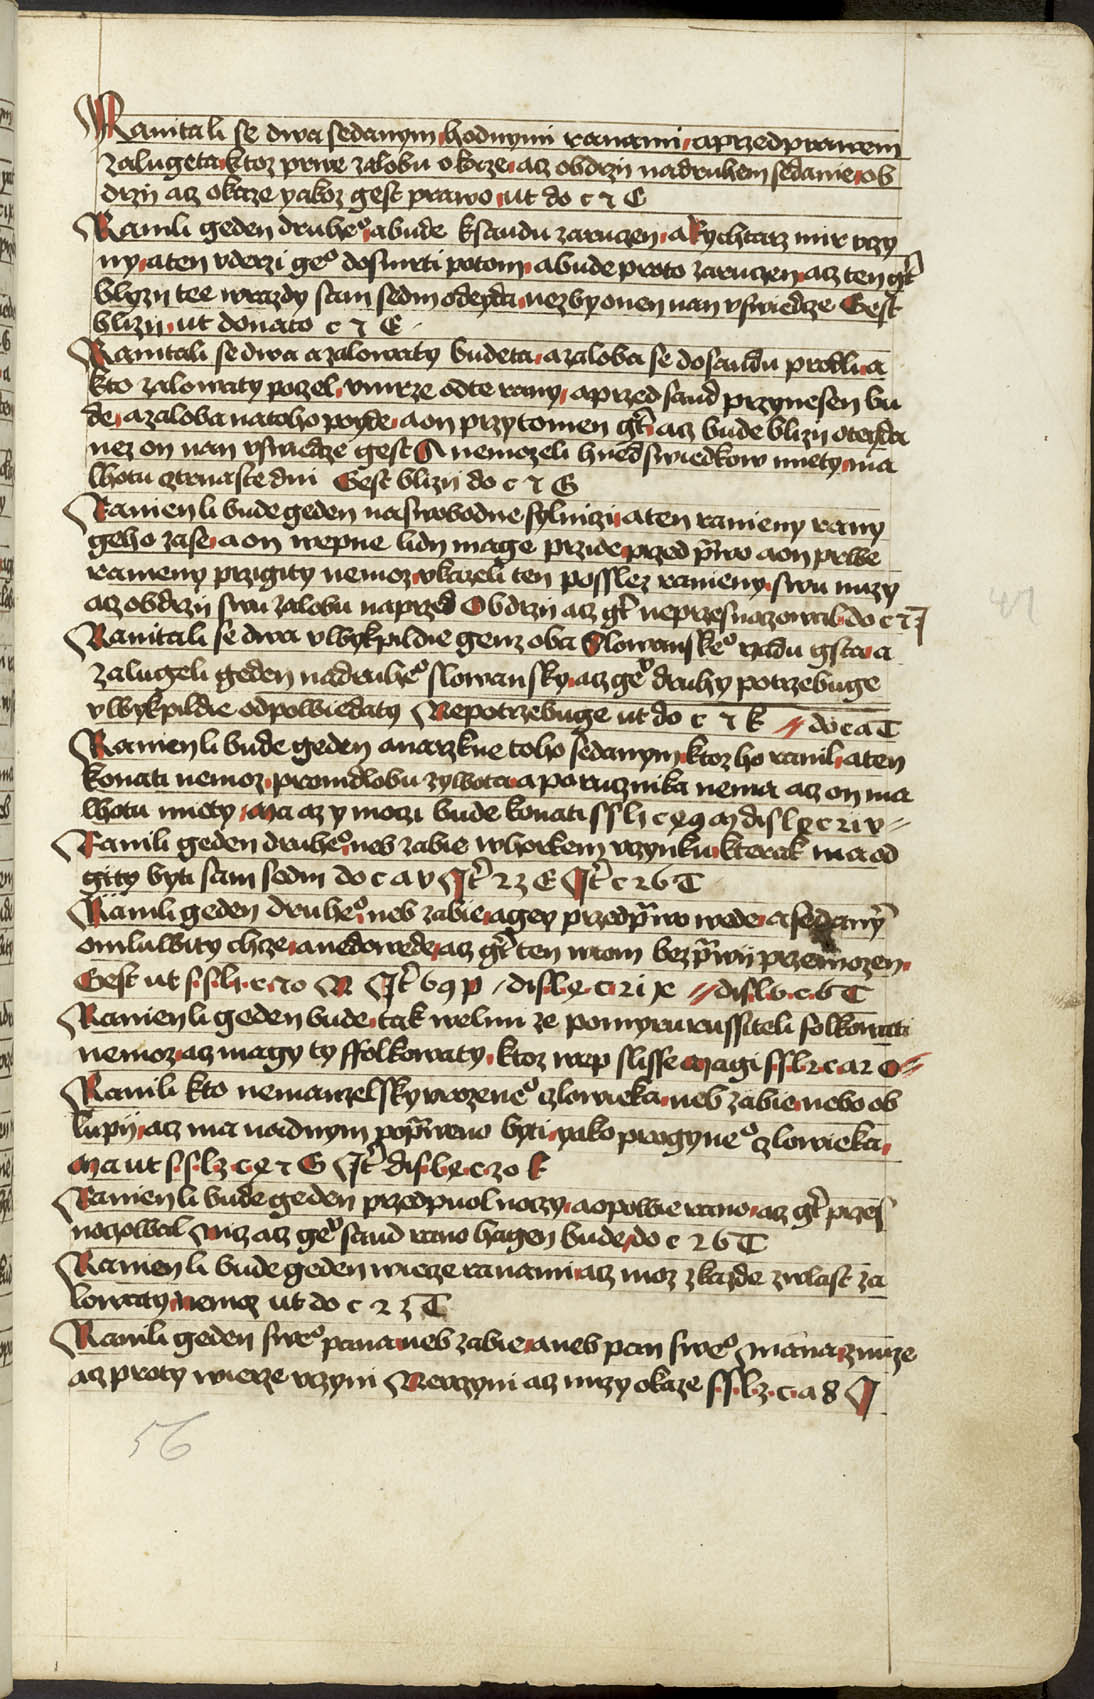 Ranita li se dwa sedanym hodnymi ranami aprzed prawem
zalugeta ktoz prwe zalobu okaze acz obdrzij nadruhem sedanie ob
drzij acz okaze yakoz gest prawo ut do c ⁊ C
Ranili geden druheº abude ksaudu zaruczen a Rychtarz mir vczy
ny aten vderzi geº dosmrti potom abude proto zaruczen acz ten gt̄
blizij tee wrazdy sam sedm odeyda nezby onen nan vswiedcze Gest
blizij ut donato c ⁊ E
Ranitali se dwa a zalowaty budeta a zaloba se dosaudu prodli a
kto zalowaty poczel vmrze odte rany aprzed saud przynesen bu
de a zaloba natoho poyde aon przytomen gt̄ acz bude blizij oteyda
nez on nan vswiedcze gest A nemozeli hned swiedkow miety ma
lhotu cztrnaste dni Gest blizij do c ⁊ G
Ranien li bude geden naswobodne sylniczi aten ranieny rany
geho zase aon wepne lidij mage przide przed p̄wo aon prwe
ranieny przigity nemoz vkazeli ten posslez ranieny swu nuzy
acz obdrzij swu zalobu naprzed Obdrzij acz gt̄ neprzesnoczowal do c ⁊ J
Ranitali se dwa vwykpildie genz oba Slowanskeº rzadu gsta a
zalugeli geden nadruheº slowansky acz geº druhy potrzebuge
vwykpildie odpowiedaty Nepotrzebuge ut do c ⁊ k // do c a T
Ranien li bude geden anarzkne toho sedanym ktoz ho ranil aten
konati nemoz promdlobu zywota a porucznika nema acz on ma
lhotu miety Ma az y moczi bude konati
Ranili geden druheº neb zabie whorkem vczynku kterak ma od
gity byti sam sedm do c a v Jt̄ 23 E Jt̄ c 26 T
Ranili geden druheº neb zabie agey przed p̄wo wede a sedany̅
omluwity chcze anedowede acz gt̄ ten wtom bez p̄wij przemozen
Gest ut
Ranien li geden bude tak welmi ze pomyru russiteli folkowati
nemoz acz magy ty ffolkowaty ktoz wep slisse Magi
Ranili kto nemanzelsky vrozeneº czlowieka neb zabie nebo ob
lupij acz ma nadnym pop̄weno byti yako progyneº czlowieka
Ma ut
Ranien li bude geden przed puol noczy aopowie rano acz gt̄ przes
noczowal Nicz acz geº saud rano hagen bude do c 26 T
Ranien li bude geden wiecze ranami acz moz zkazde zwlast za
lowaty nemoz ut do c 2 3 T
Ranili geden sweº pana neb zabie aneb pan sweº mana zmuze
acz proty wierze vczyni Neuczyni acz nuzy okaze
56